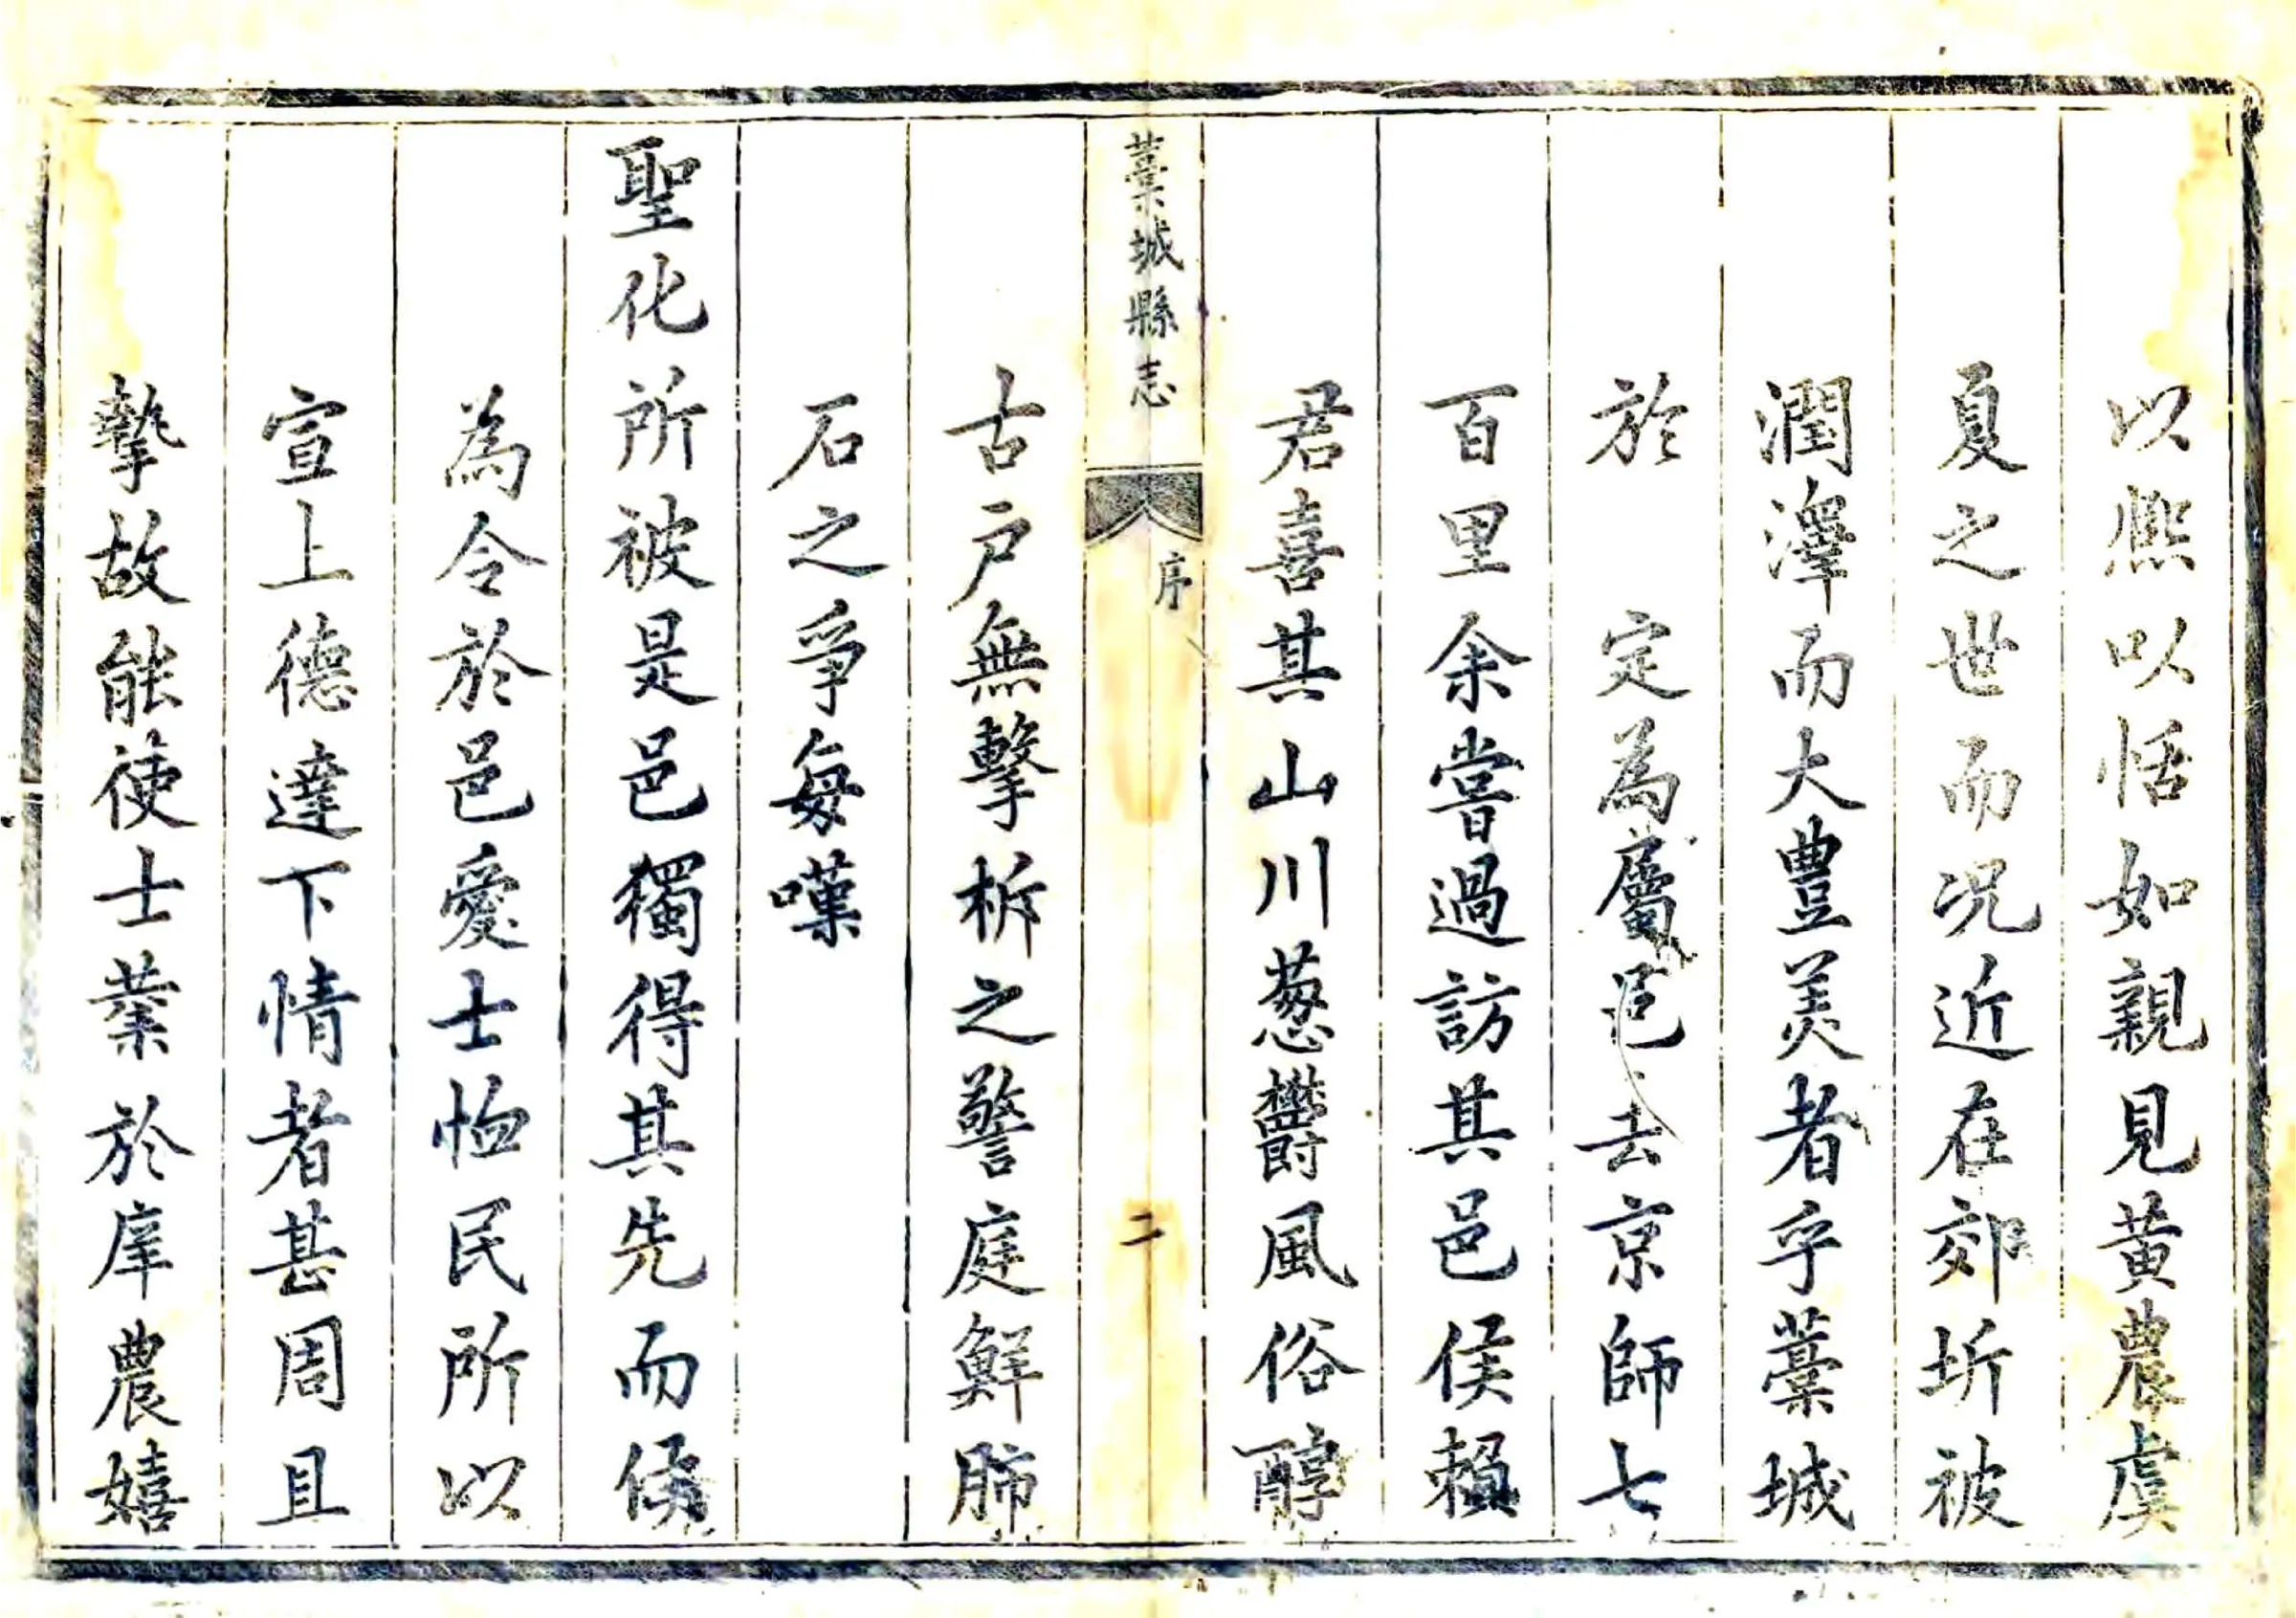 以熈以恬如親見黄農虞
夏之世而况近在郊圻被
潤澤而大豊美者乎藁城
於　定為屬邑去京師七
百里余嘗過訪其邑侯賴
君喜其山川葱鬱風俗醇
藁城縣志　序　二
古户無擊柝之警庭鮮肺
石之爭每嘆
聖化所被是邑獨得其先而侯
為令於邑愛士恤民所以
宣上德達下情者甚周且
摯故能使士業於庠農嬉